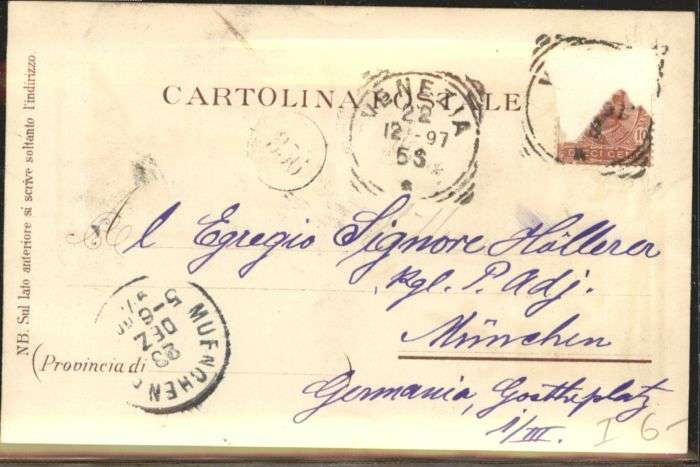 CARTOLINA POSTALE
NB. Sul lato anteriore si scrive soltanto l'indirizzo.
VENEZIA
22
12 - 97
5S
10
Al Egregio Signore Höllerer
kgl. P. Adj.
München
(Provincia di
Germania, Goetheplatz
1/III.
MUENCHEN
DEZ
I 6-